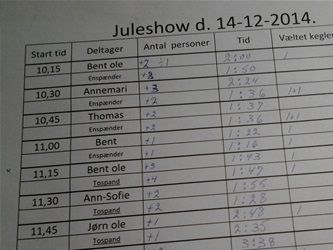 Juleshow d. 14-12-2014.
Start tid Deltager Antal personer Tid Væltet kegler
10,15 Bent ole +2 ÷1 2:00 /
Enspænder +3 1:50
10,30 Annemari +3 2:24
Enspænder +2 1:36 /+/
10,45 Thomas +2 1:37
Enspænder +2 1:36 /+/
11,00 Bent +1 1:22 /
Enspænder +1 1:16 /
11,15 Bent ole +3 1:43 /
Tospand +4 1:47 /
11,30 Ann-Sofie +2 1:55
Tospand +2 1:28
11,45 Jørn ole +1 2:48 /
Tospand +1 2:35 /
3:38